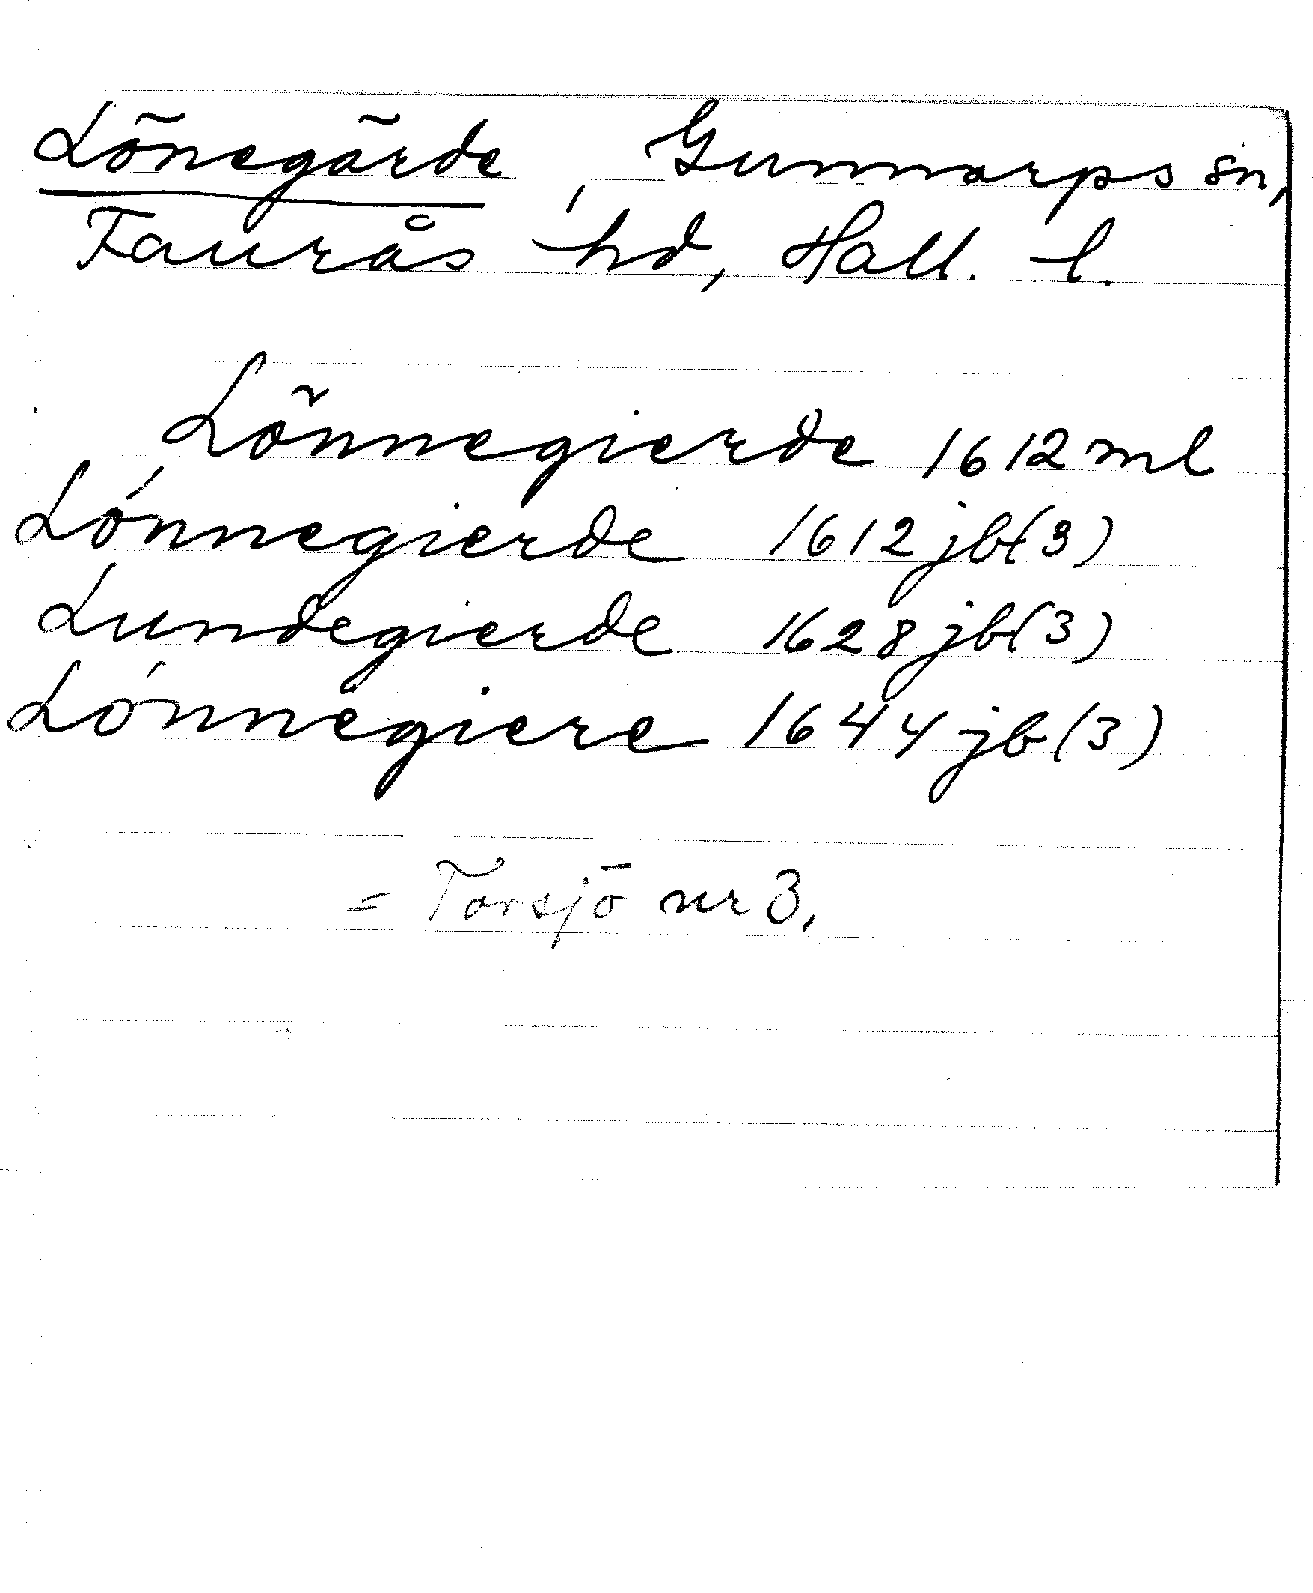 Lönegärde, Gunnarps sn,
Faurås hd, Hall. l.
Lönnegierde 1612 ml
Lónnegierde 1612 jb(3)
Lundegierde 1628 jb(3)
Lónnegiere 1644 jb(3)
= Torsjö nr 3,